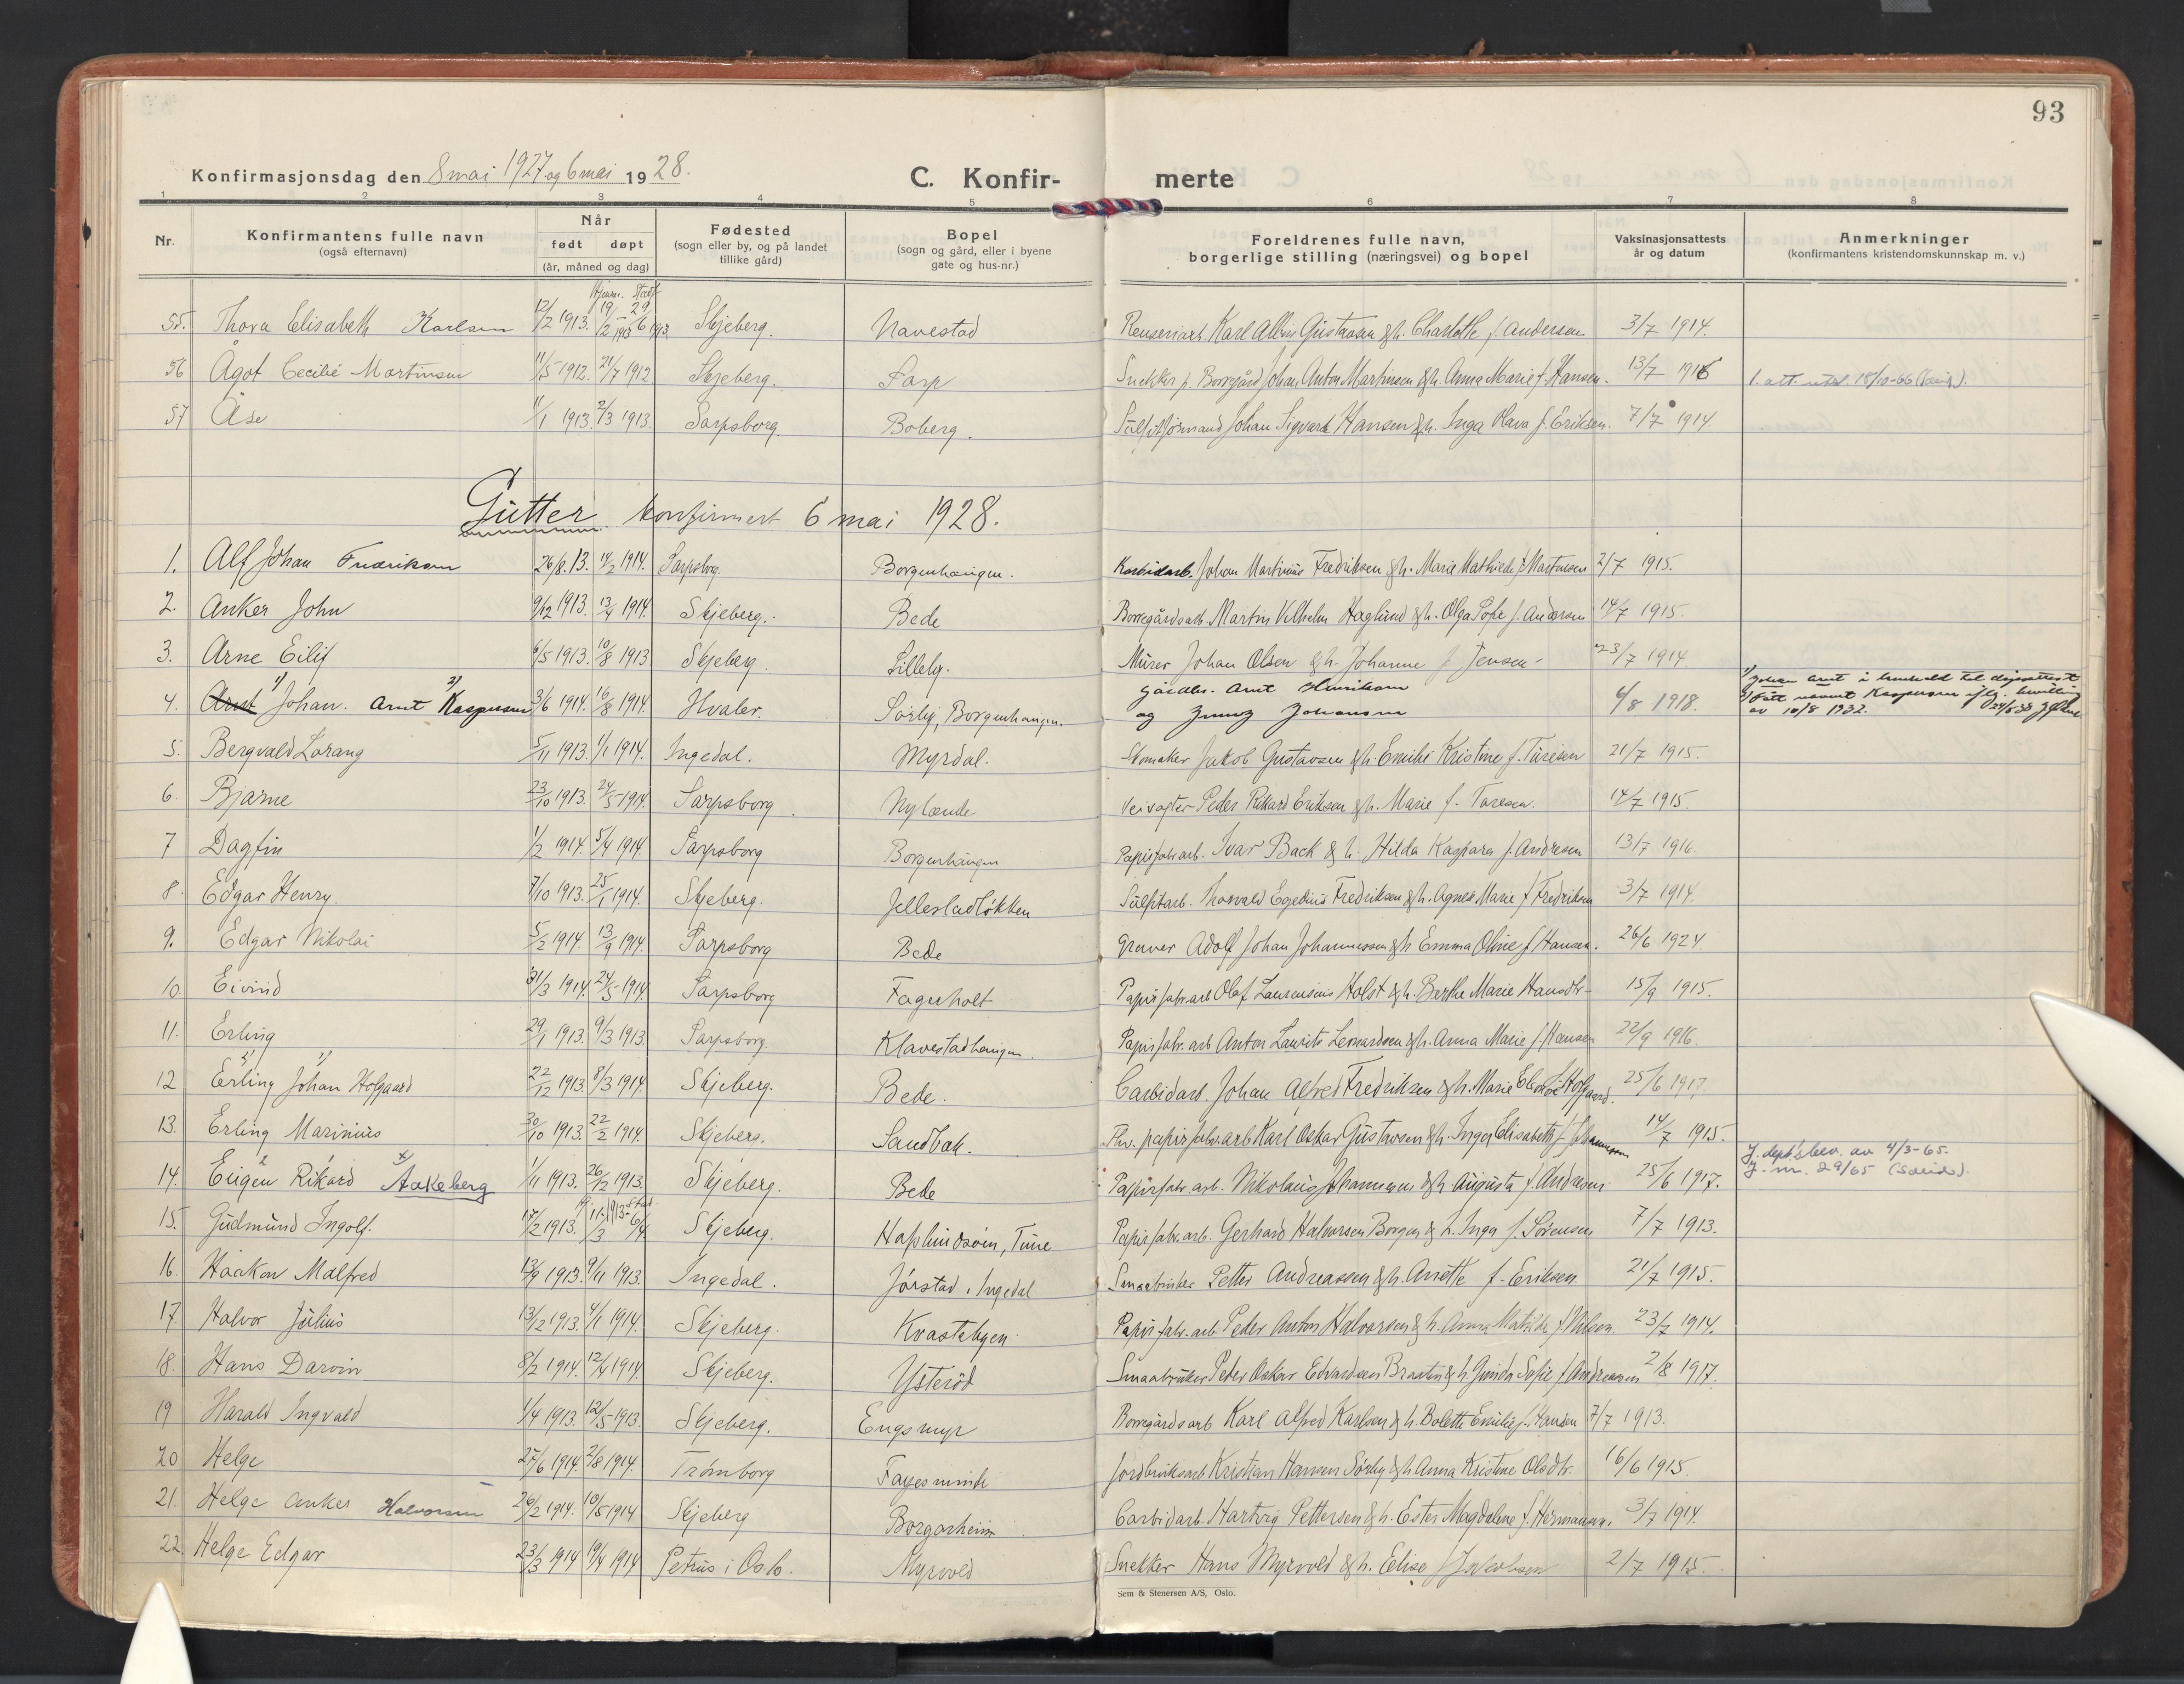 93
Konfirmasjonsdag den 8 mai 1927 og 6 mai 1928.
C. Konfir- merte
1 2 3 4 5 6 7 8
Nr. Konfirmantens fulle navn (også efternavn) Når født døpt (år, måned og dag) Fødested (sogn eller by, og på landet tillike gård) Bopel (sogn og gård, eller i byene gate og hus-nr.) Foreldrenes fulle navn, borgerlige stilling (næringsvei) og bopel Vaksinasjonsattests år og datum Anmerkninger (konfirmantens kristendomskunnskap m. v.)
55. Thora Elisabeth Karlsen 12/2 1913. Hjemme 19/2 1913 Stadf. 29/6 1913 Skjeberg. Navestad Karl Albin Gustavsen & h. Charlotte f. Andersen 3/7 1914.
56 Ågot Cecilie Martinsen 11/5 1912. 21/7 1912 Skjeberg. Sarp Snekker p. Borregård Johan Anton Martinsen & h. Anna Marie f. Hansen. 13/7 1916 1. att. utst. 18/10-66
57 Åse 11/1 1913. 2/3 1913. Sarpsborg. Boberg. Johan Sigvard Hansen & h. Inga Olava f. Eriksen. 7/7 1914
Gutter konfirmert 6 mai 1928.
1. Alf Johan Fredriksen 26/8.13. 14/2 1914. Sarpsborg. Borgenhaugen. Karbidarb. Johan Martinius Fredriksen & h. Marie Mathilde f. Martinsen 2/7 1915.
2. Anker John 9/12 1913. 13/4 1914. Skjeberg. Bede Borregårdsarb. Martin Vilhelm Haglund & h. Olga Sofie f. Andersen 14/7 1915.
3. Arne Eilif 6/5 1913. 10/8 1913 Skjeberg. Lilleby. Murer Johan Olsen & h. Johanne f. Jensen- 23/7 1914
4. Arnt 1) Johan. Arnt 2) Kaspersen 3/6 1914. 16/8 1914. Hvaler. Sørby, Borgenhaugen. Gårdbr. Arnt Henriksen 6/8 1918. 1) Johan Arnt i henhold til dåpsattest.
og Jenny Johansen 2) Fått navnet Kaspersen iflg. bevilling av 10/8 1932.
5. Bergvald Lorang 5/11 1913. 1/1 1914. Ingedal. Myrdal. Skomaker Jakob Gustavsen & h. Emilie Kristine f. Turesen 21/7 1915.
6. Bjarne 23/10 1913. 24/5 1914. Sarpsborg. Nylende Veivogter Peder Rikard Eriksen & h. Marie f. Toresen. 14/7 1915.
7 Dagfin 1/2 1914. 5/4 1914. Sarpsborg Borgenhaugen Papirfabr.arb. Ivar Back & h. Hilda Kaspara f. Andresen 13/7 1916.
8. Edgar Henry. 7/10 1913. 25/1 1914. Skjeberg. Jellestadløkken Sulfitarb. Thorvald Egedius Fredriksen & h. Agnes Marie f. Fredriksen 3/7 1914.
9. Edgar Nikolai 5/2 1914. 13/9 1914. Sarpsborg Bede Graver Adolf Johan Johannessen & h. Emma Oline f. Hansen. 26/6 1924.
10. Eivind 31/3 1914. 24/5 1914. Sarpsborg Fagerholt Papirfabr.arb Olaf Laurensius Holst & h. Berthe Marie Hansdtr- 15/9 1915.
11. Erling 29/1 1913. 9/3 1913. Sarpsborg. Klavestadhaugen. Papirfabr.arb Anton Laurits Leonardsen & h. Anna Marie f. Hansen 22/9 1916.
12 Erling 2) Johan 1) Holgaard 22/12 1913. 8/3 1914. Skjeberg. Bede. Carbidarb. Johan Alfred Fredriksen & h. Marie f. Holgaard. 25/6 1917.
13. Erling Marinius 30/10 1913. 22/2 1914. Skjeberg. Sandbak. Fhv. papirfabr.arb Karl Oskar Gustavsen & h. Inger Elisabeth f. Johannessen 14/7 1915.
14. Eugen Rikard x) Aakeberg 1/11 1913. 26/12 1913. Skjeberg. Bede Papirfabr.arb. Nikolaus Johannesen & h. Augusta f. Andresen 25/6 1917. J. dept's bev. av 4/3-65. J. nr. 29/65
15. Gudmund Ingolf. 17/2 1913. 11/3 1913 Stad. 6/4 Skjeberg. Haslundsøen, Tune Papirfabr.arb. Gerhard Halvorsen Borgen & h. Inga f. Sørensen 7/7 1913.
16. Haakon Malfred 13/9 1913. 9/11 1913. Ingedal. Jørstad. Ingedal Smaabruker Petter Andreassen & h. Anette f. Eriksen 21/7 1915.
17. Halvor Julius 13/12 1913. 4/1 1914. Skjeberg. Kvastebyen Papirfabr.arb Peder Anton Halvorsen & h. Anna Matilde f. Nilsen. 23/7 1914.
18. Hans Darvin 8/2 1914. 12/4 1914. Skjeberg. Ysterød Smaabruker Peder Oskar Edvardsen Braaten & h. Gunda Sofie f. Andreassen 2/8 1917.
19 Harald Ingvald 1/4 1913. 12/5 1913. Skjeberg. Engsmyr Borregårdsarb Karl Alfred Karlsen & h. Bolette Emilie f. Hansen 7/7 1913.
20 Helge 27/6 1914. 2/8 1914. Trømborg Fagesminde Jordbruksarb Kristian Hansen Sørby & h. Anna Kristine Olsdtr. 16/6 1915.
21. Helge Anker Halvorsen 26/2 1914. 10/5 1914 Skjeberg Borgarheim Carbidarb Hartvig Pettersen & h. Ester Magdalene f. Hermansen. 3/7 1914.
22. Helge Edgar 23/3 1914 19/4 1914 Petrus i Oslo. Myrvold Snekker Hans Myrvold & h. Elise f. Jakobsen 2/7 1915.
Sem & Stenersen A/S, Oslo.